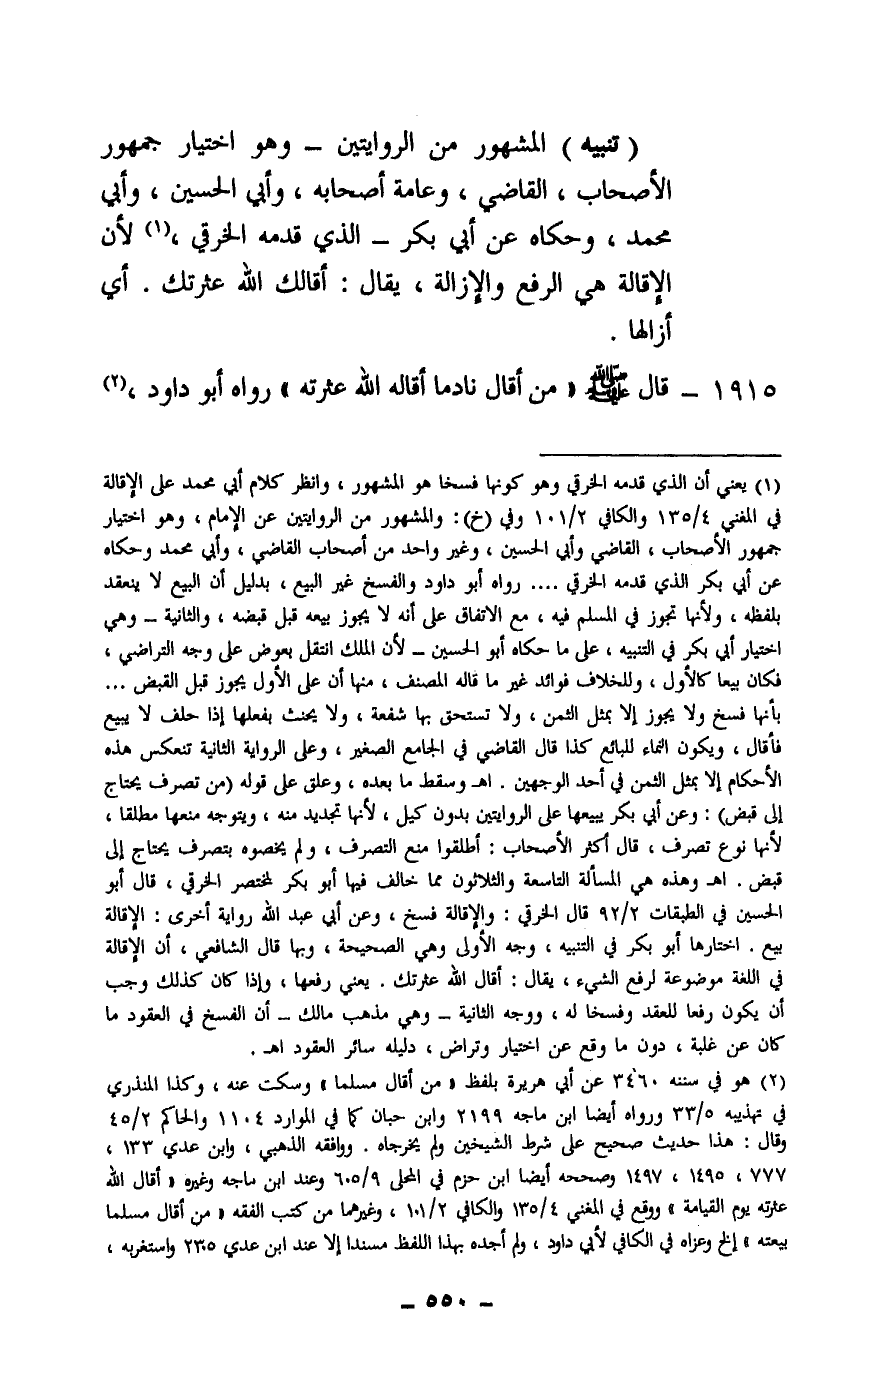 ( تنبيه ) المشهور من الروايتين – وهو اختيار جمهور
الأصحاب ، القاضي ، وعامة أصحابه ، وأبي الحسين ، وأبي
محمد ، وحكاه عن أبي بكر – الذي قدمه الخرقي ،(١) لأن
الإقالة هي الرفع والإزالة ، يقال : أقالك الله عثرتك . أي
أزالها .
١٩١٥ – قال ﷺ « من أقال نادما أقاله الله عثرته » رواه أبو داود ،(٢)
(١) يعني أن الذي قدمه الخرقي وهو كونها فسخا هو المشهور ، وانظر كلام أبي محمد على الإقالة
في المغني ١٣٥/٤ والكافي ١٠١/٢ وفي (خ): والمشهور من الروايتين عن الإمام ، وهو اختيار
جمهور الأصحاب ، القاضي وأبي الحسين ، وغير واحد من أصحاب القاضي ، وأبي محمد وحكاه
عن أبي بكر الذي قدمه الخرقي .... رواه أبو داود والفسخ غير البيع ، بدليل أن البيع لا ينعقد
بلفظه ، ولأنها تجوز في المسلم فيه ، مع الاتفاق على أنه لا يجوز بيعه قبل قبضه ، والثانية – وهي
اختيار أبي بكر في التنبيه ، على ما حكاه أبو الحسين – لأن الملك انتقل بعوض على وجه التراضي ،
فكان بيعا كالأول ، وللخلاف فوائد غير ما قاله المصنف ، منها أن على الأول يجوز قبل القبض ...
بأنها فسخ ولا يجوز إلا بمثل الثمن ، ولا تستحق بها شفعة ، ولا يحنث بفعلها إذا حلف لا يبيع
فأقال ، ويكون النماء للبائع كذا قال القاضي في الجامع الصغير ، وعلى الرواية الثانية تنعكس هذه
الأحكام إلا بمثل الثمن في أحد الوجهين . اهـ وسقط ما بعده ، وعلق على قوله (من تصرف يحتاج
إلى قبض) : وعن أبي بكر يبيعها على الروايتين بدون كيل ، لأنها تجديد منه ، ويتوجه منعها مطلقا ،
لأنها نوع تصرف ، قال أكثر الأصحاب : أطلقوا منع التصرف ، ولم يخصوه بتصرف يحتاج إلى
قبض . اهـ وهذه هي المسألة التاسعة والثلاثون مما خالف فيها أبو بكر لمختصر الخرقي ، قال أبو
الحسين في الطبقات ٩٢/٢ قال الخرقي : والإقالة فسخ ، وعن أبي عبد الله رواية أخرى : الإقالة
بيع . اختارها أبو بكر في التنبيه ، وجه الأولى وهي الصحيحة ، وبها قال الشافعي ، أن الإقالة
في اللغة موضوعة لرفع الشيء ، يقال : أقال الله عثرتك . يعني رفعها ، وإذا كان كذلك وجب
أن يكون رفعا للعقد وفسخا له ، ووجه الثانية – وهي مذهب مالك – أن الفسخ في العقود ما
كان عن غلبة ، دون ما وقع عن اختيار وتراض ، دليله سائر العقود اهـ .
(٢) هو في سننه ٣٤٦٠ عن أبي هريرة بلفظ « من أقال مسلما » وسكت عنه ، وكذا المنذري
في تهذيبه ٣٣/٥ ورواه أيضا ابن ماجه ٢١٩٩ وابن حبان كما في الموارد ١١٠٤ والحاكم ٤٥/٢
وقال : هذا حديث صحيح على شرط الشيخين ولم يخرجاه . ووافقه الذهبي ، وابن عدي ١٣٣ ،
٧٧٧ ، ١٤٩٥ ، ١٤٩٧ وصححه أيضا ابن حزم في المحلى ٦٠٥/٩ وعند ابن ماجه وغيره « أقال الله
عثرته يوم القيامة » ووقع في المغني ١٣٥/٤ والكافي ١٠١/٢ ، وغيرهما من كتب الفقه « من أقال مسلما
بيعته » إلخ وعزاه في الكافي لأبي داود ، ولم أجده بهذا اللفظ مسندا إلا عند ابن عدي ٢٣٠٥ واستغربه ،
– ٥٥٠ –